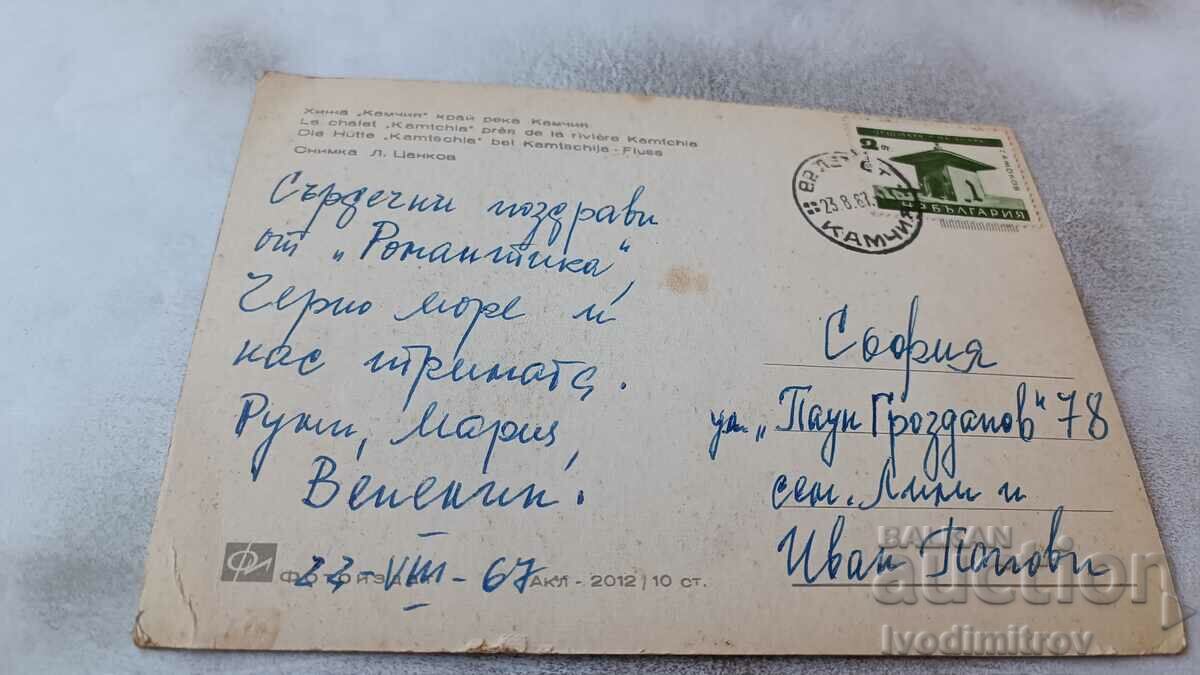 Хижа „Камчия" край река Камчия
La chalet „Kamtchia" près de la rivière Kamtchia
Die Hütte „Kamtschia" bei Kamtschija-Fluss
Снимка Л. Цанков
Сърдечни поздрави
от „Романтика",
Черно море и
нас трината.
Ружи, Мария,
Венения.
23-VIII-67
Фотоиздат Акл - 2012 | 10 ст.
2
България
23.8.67.
Камчия
София
ул. „Паун Грозданов" 78
сем. Лили и
Иван Попови
BALKAN
auction
Ivodimitrov